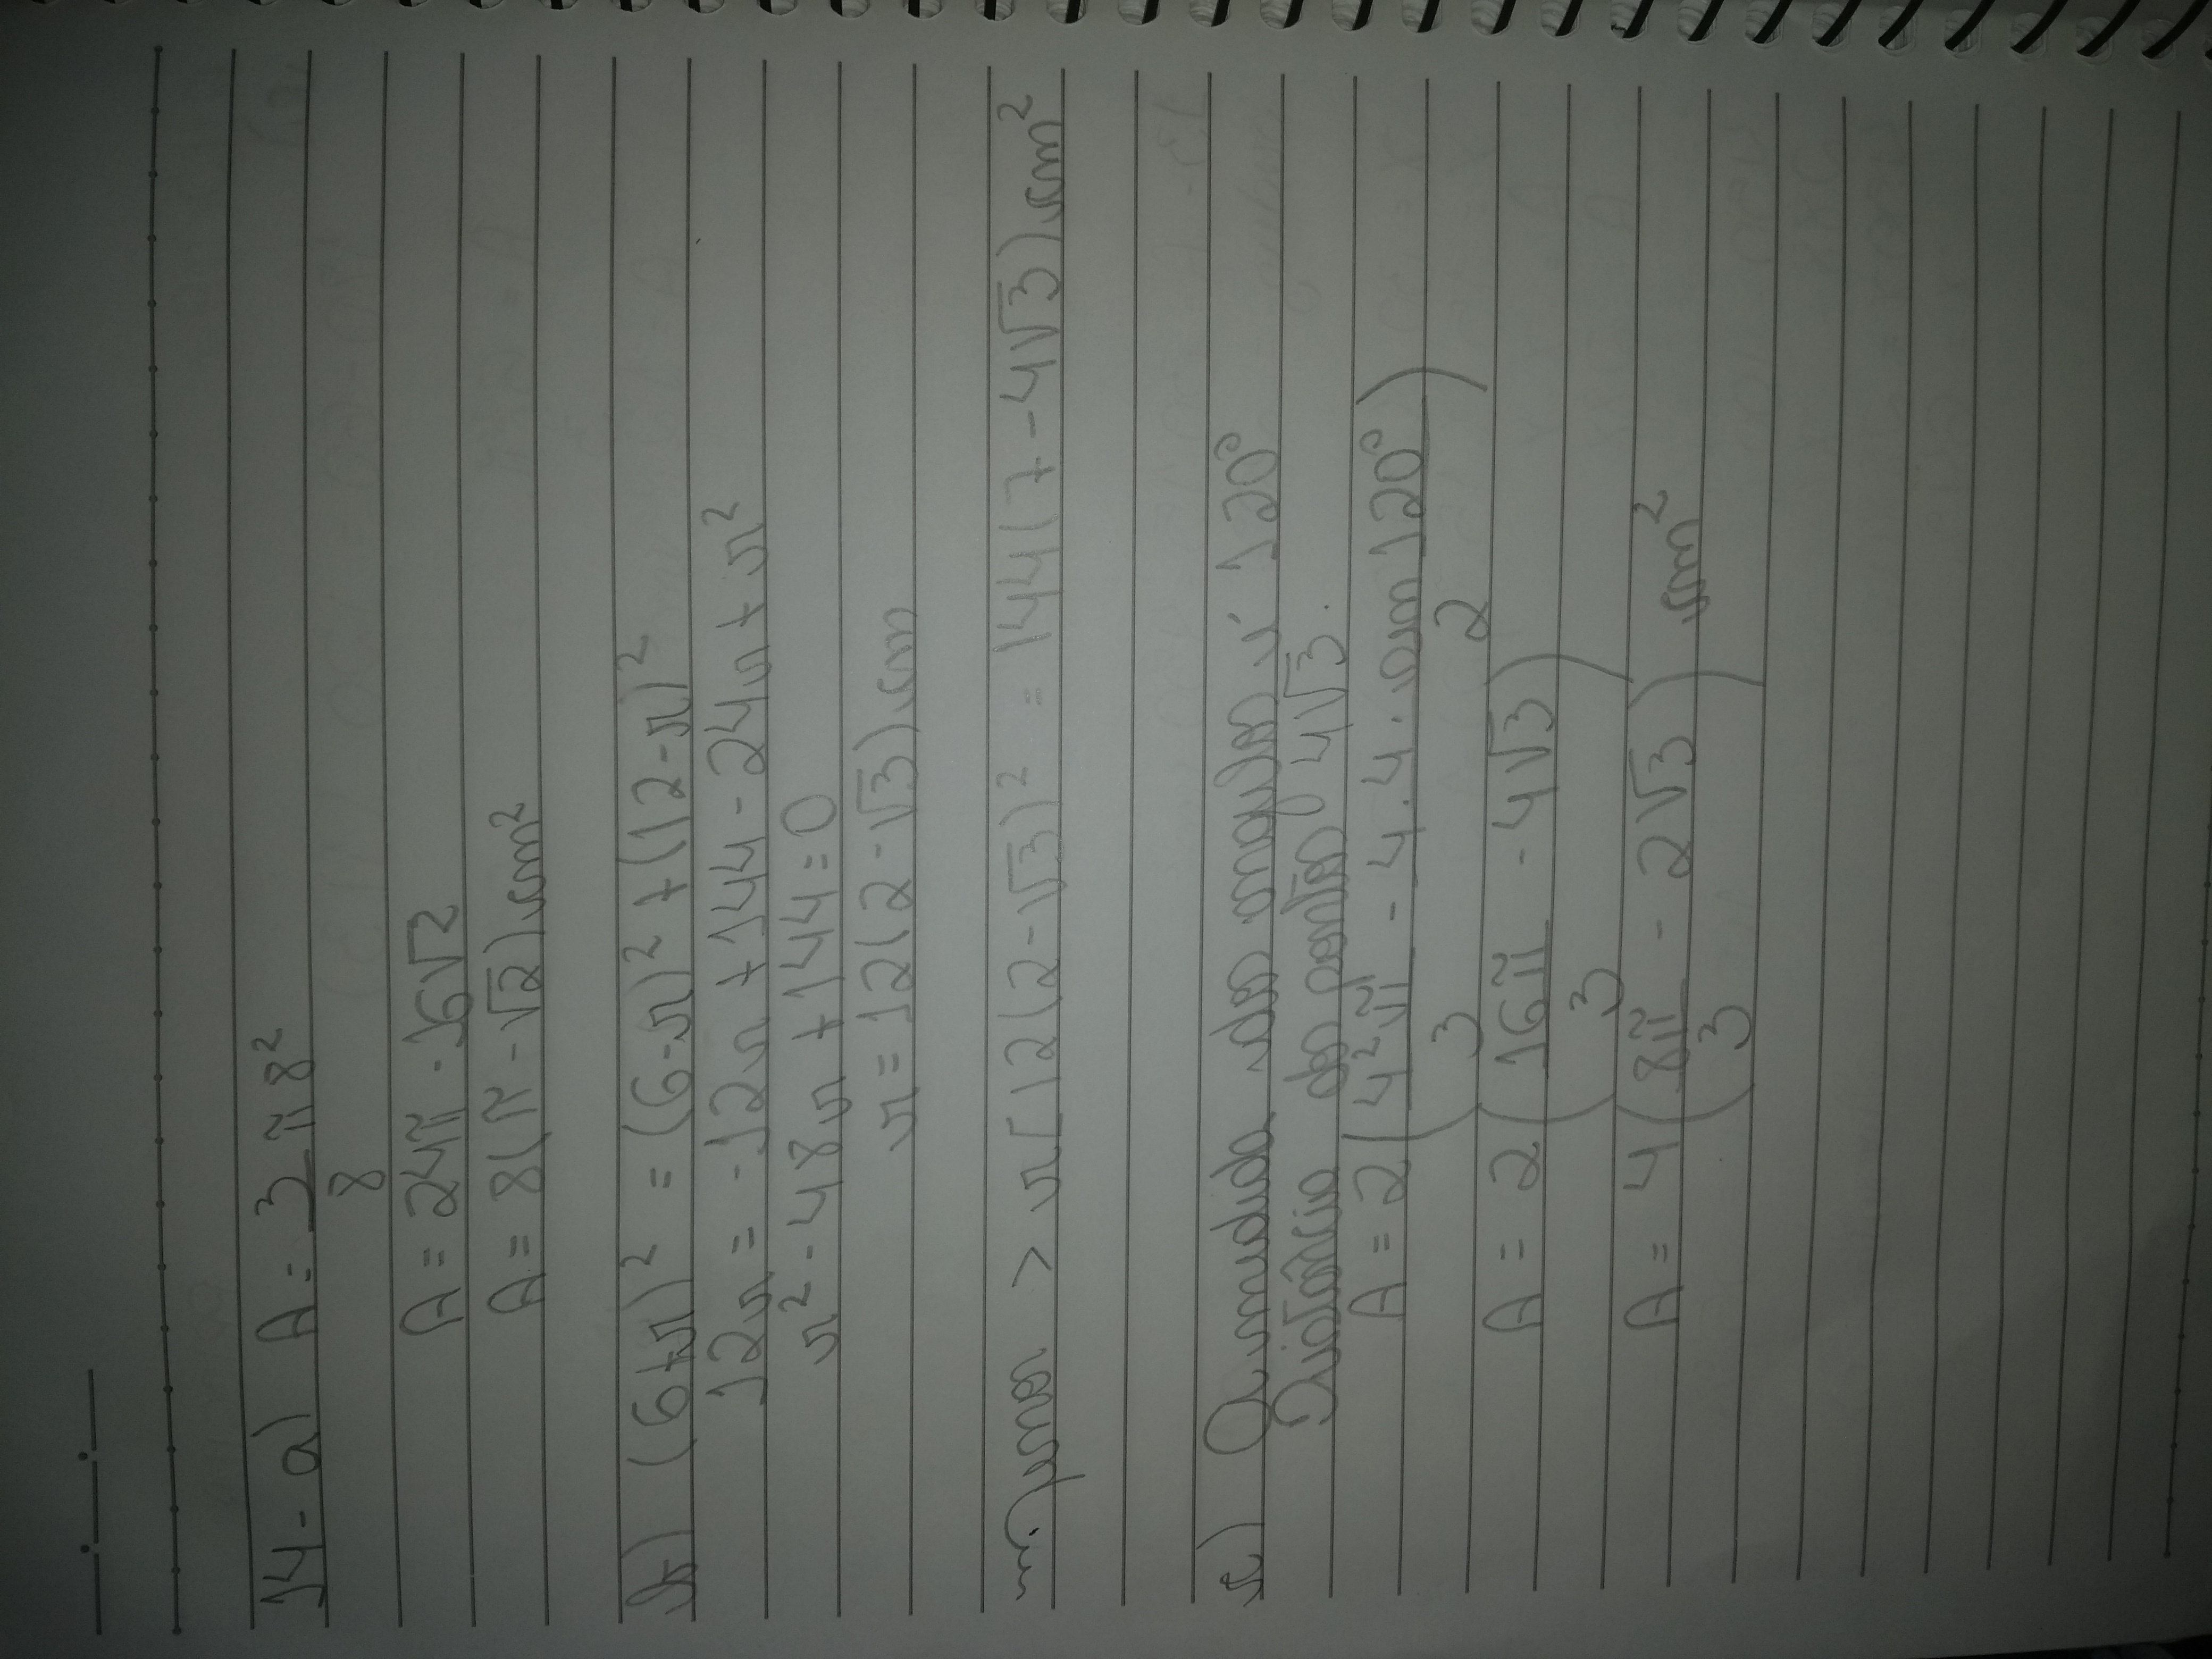 14- a) A = 3 π 8²
8
A = 24π - 16√2
A = 8(π - √2) cm²
b) (6+r)² = (6-r)² + (12-r)²
12r = -12r + 144 - 24r + r²
r² - 48r + 144 = 0
r = 12(2-√3) cm
> π[12(2-√3)² = 144(7-4√3) cm²
c) A medida dos angulos é 120°
Distância do pontos 4√3.
A = 2 ( 4²π - 4.4. sen 120° )
3 2
A = 2 ( 16π - 4√3 )
3
A = 4 ( 8π - 2√3 ) cm²
3